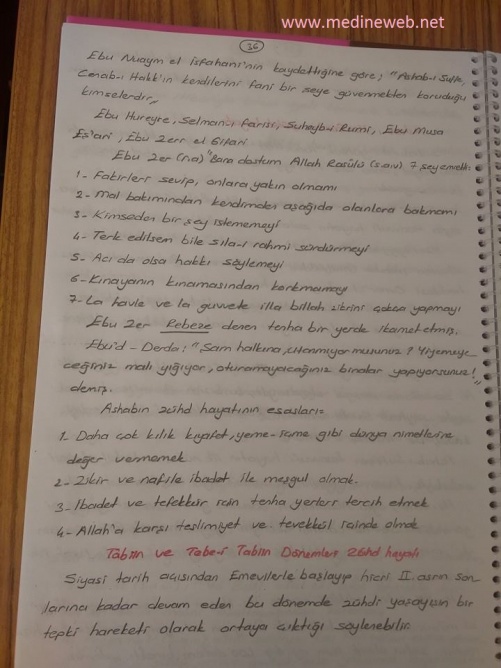 www.medineweb.net
36
Ebu Nuaym el isfahani'nin kaydettiğine göre; "Ashab-ı Suffe,
Cenab-ı Hakk'ın kendilerini fani bir şeye güvenmekten koruduğu
kimselerdir,,
Ebu Hureyre, Selman-ı Farisi, Suheyb-u Rumi, Ebu Musa
Eş'ari, Ebu Zerr el Gifari
Ebu Zer (ra) "Bana dostum Allah Rasülü (s.a.v) 7 şey emretti:
1- Fakirleri sevip, onlara yakın olmamı
2- Mal bakımından kendimden aşağıda olanlara bakmamı
3- Kimseden bir şey istememeyi
4- Terk edilsem bile sıla-i rahmi sürdürmeyi
5- Acı da olsa hakkı söylemeyi
6- Kınayanın kınamasından korkmamayı
7- La havle ve la guvvete illa billah zikrini çokça yapmayı
Ebu Zer Rebeze denen tenha bir yerde ikamet etmiş.
Ebu'd-Derda: "Şam halkına, utanmıyor musunuz? Yiyemeye-
ceğiniz malı yığıyor, oturamayacağınız binalar yapıyorsunuz!,,
demiş.
Ashabın zühd hayatının esasları=
1- Daha çok kılık kıyafet, yeme-içme gibi dünya nimetlerine
değer vermemek
2- Zikir ve nafile ibadet ile meşgul olmak.
3- İbadet ve tefekkür için tenha yerleri tercih etmek
4- Allah'a karşı teslimiyet ve tevekkül içinde olmak
Tâbiin ve Tabe-i Tabiin Dönemleri Zühd hayatı
Siyasi tarih açısından Emevilerle başlayıp hicri II. asrın son-
larına kadar devam eden bu dönemde zühdi yaşayışın bir
tepki hareketi olarak ortaya çıktığı söylenebilir.